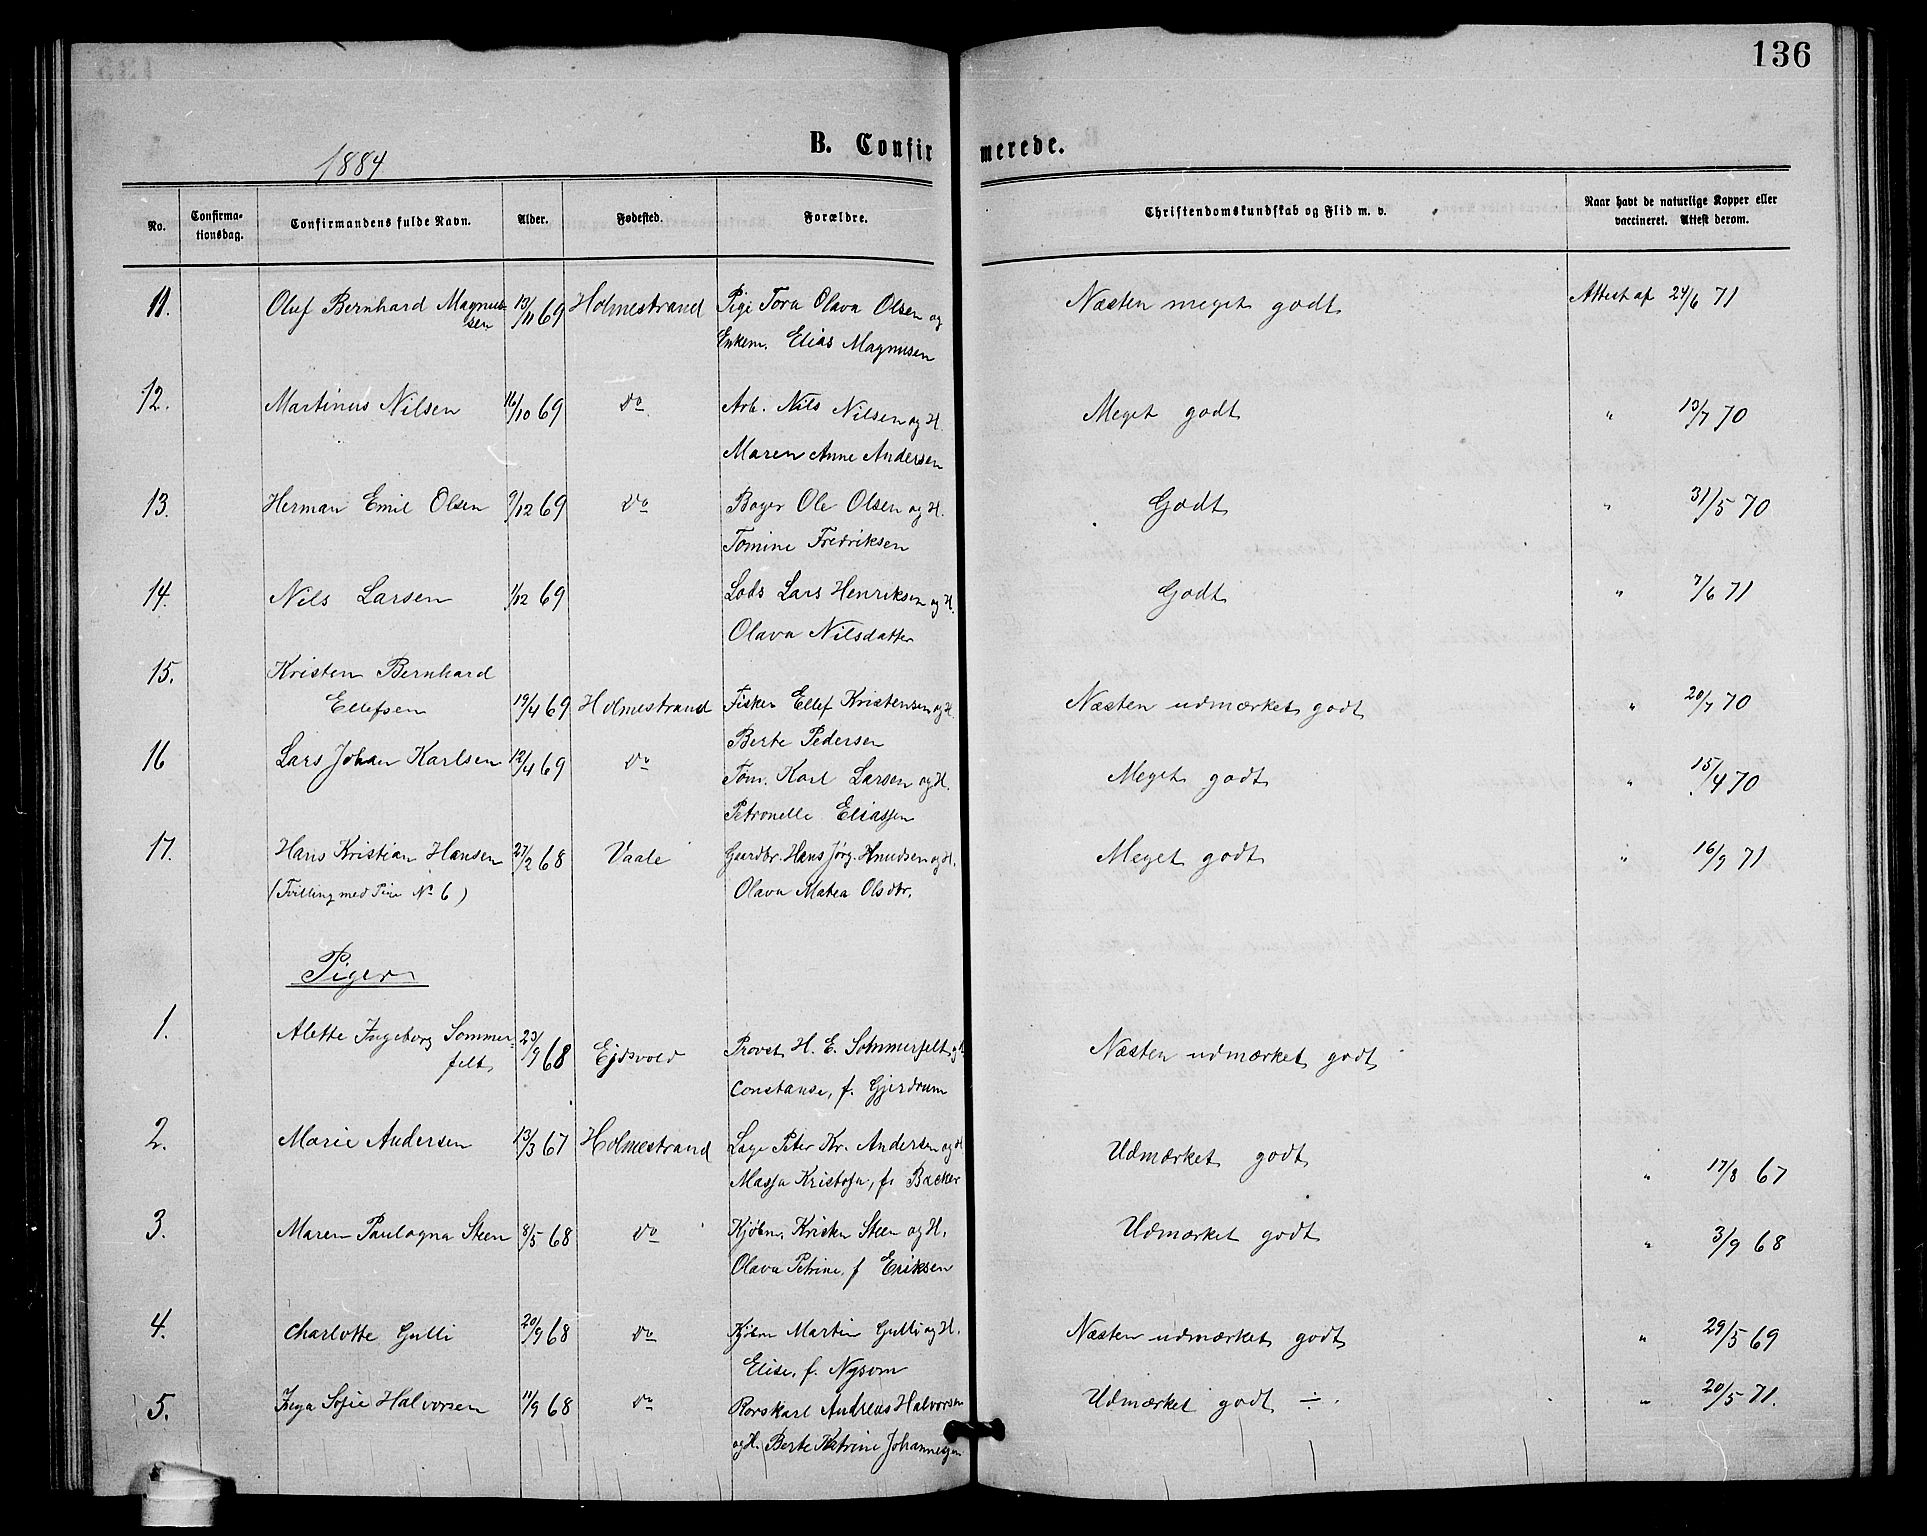 136
1884
B. Confirmerede.
No. Confirma-tionsdag. Confirmandens fulde Navn. Alder. Fødested. Forældre. Christendomskundskab og Flid m. v. Naar havt de naturlige Kopper eller vaccineret. Attest derom.
11. Oluf Bernhard Magnus- 13/11 69 Holmestrand Pige Tora Olava Olsen og Næsten meget godt Attest af 24/6 71
sen Enkem. Elias Magnusen
12. Martinus Nilsen 16/10 69 do Arb. Nils Nilsen og H. Meget godt " 13/7 70
Maren Anne Andersen
13. Herman Emil Olsen 9/12 69 do Bager Ole Olsen og H. Godt " 31/5 70
Tomine Fredriksen
14. Nils Larsen 1/12 69 Lods Lars Henriksen og H. Godt " 7/6 71
Olava Nilsdatter
15. Kristen Bernhard
Ellefsen 19/4 69 Holmestrand Fisker Ellef Kristensen og H. Næsten udmærket godt " 20/7 70
Berte Pedersen
16 Lars Johan Karlsen 12/4 69 do Tøm. Karl Larsen og H. Meget godt " 15/4 70
Petronelle Eliassen
17. Hans Kristian Hansen 27/2 68 Vaale Gaardbr. Hans Jørg. Knudsen og H. Meget godt " 16/9 71
(Tvilling med Pige No 6) Olava Matea Olsdtr.
Piger
1. Alette Ingeborg Sommer- 23/9 68 Ejdsvold Provst H. E. Sommerfelt og H. Næsten udmærket godt
felt Constanse, f. Gjerdrum
2. Marie Andersen 13/3 67 Holmestrand Læge Peter Kr. Andersen og H Udmærket godt " 17/8 67
Massa Kristofa, f. Backer
3. Maren Paulagna Steen 8/5 68 do Kjøbm. Kristen Steen og H. Udmærket godt " 3/9 68
Olava Petrine, f Eriksen
4. Charlotte Gulli 20/9 68 do Kjøbm Martin Gulli og H. Næsten udmærket godt " 29/5 69
Elise, f. Nysom
5. Inga Sofie Halvorsen 11/9 68 do Rorskarl Andreas Halvorsen Udmærket godt ÷ " 20/5 71.
og H. Berte Katrine Johannessen